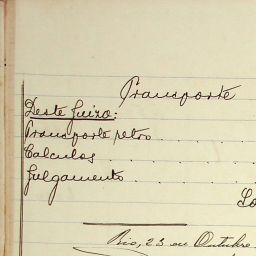 Transporte
Deste Juizo:
Transporte retro
Calculos
Julgamento
Rio, 23 de Outubro